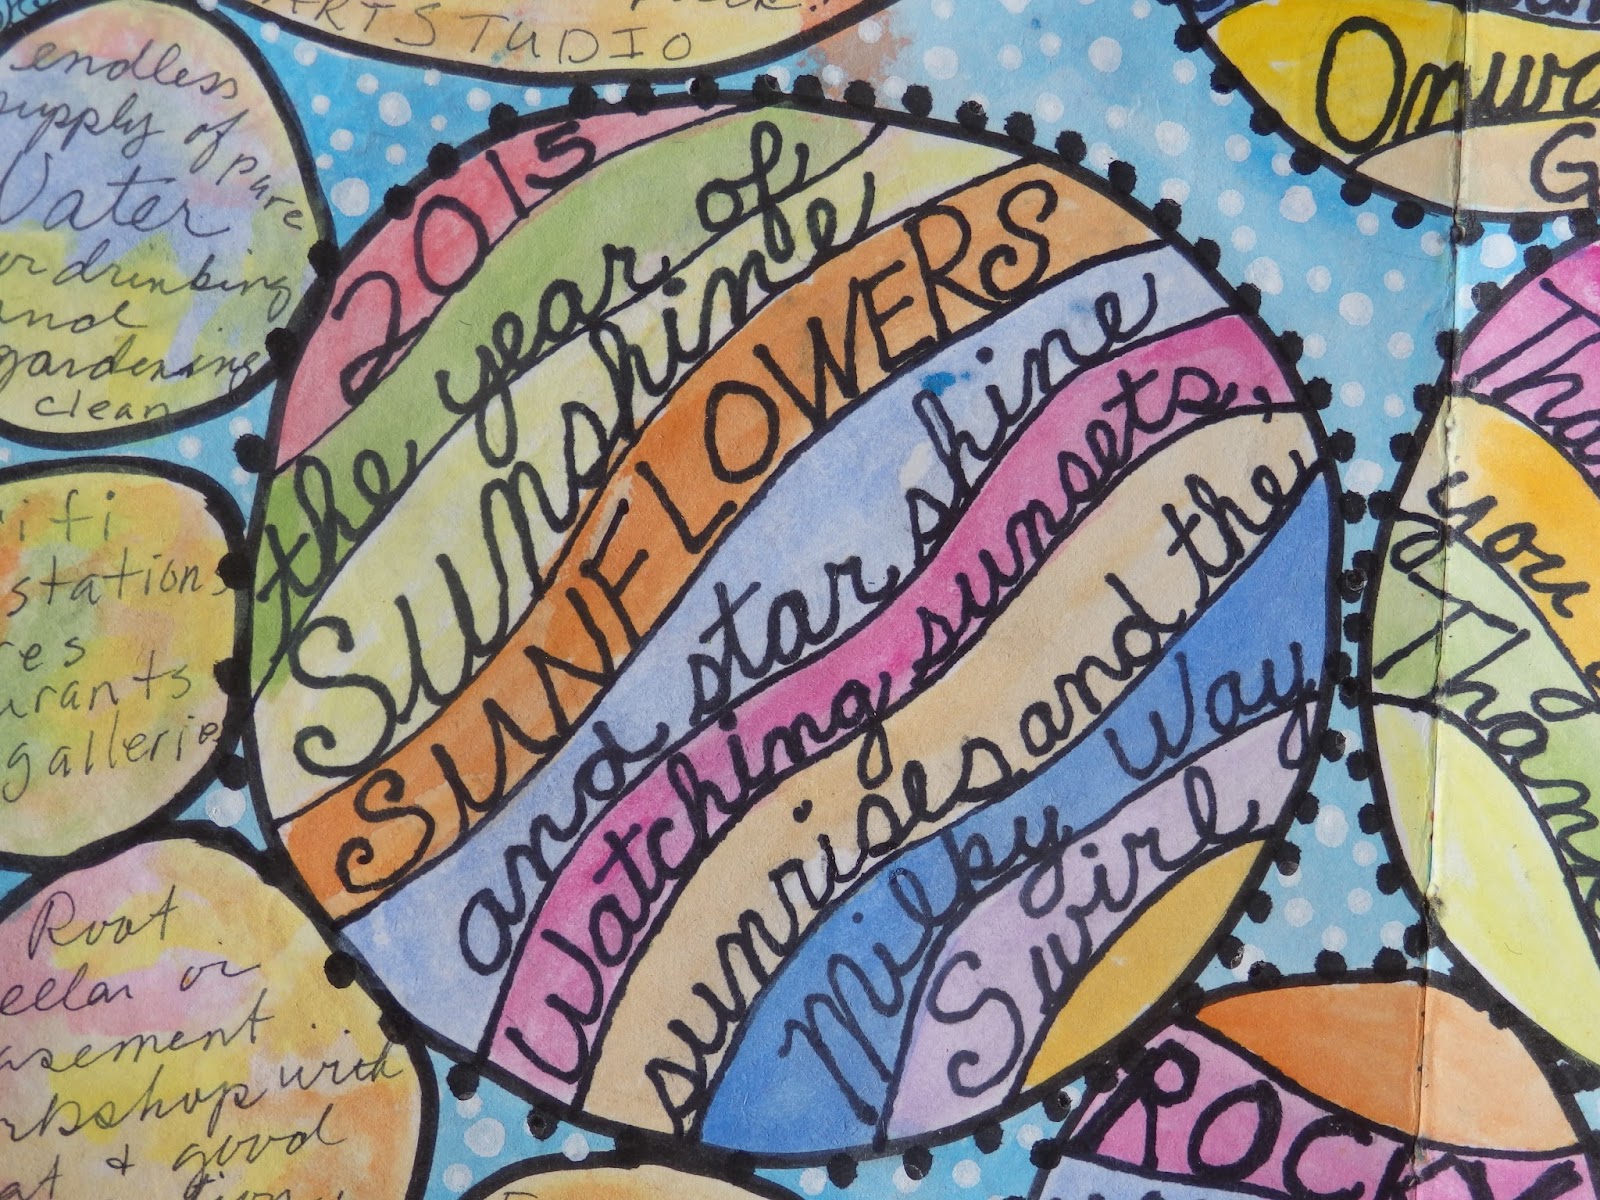 ARTSTUDIO
endless
supply of pure
Water
drinking
and
gardening
clean
stations
galleries
Root
or
with
& good
2015
the year of
Sunshine
SUNFLOWERS
and star shine
Watching sunsets..
sunrises and the
Milky Way
Swirl
G
you
ROCK